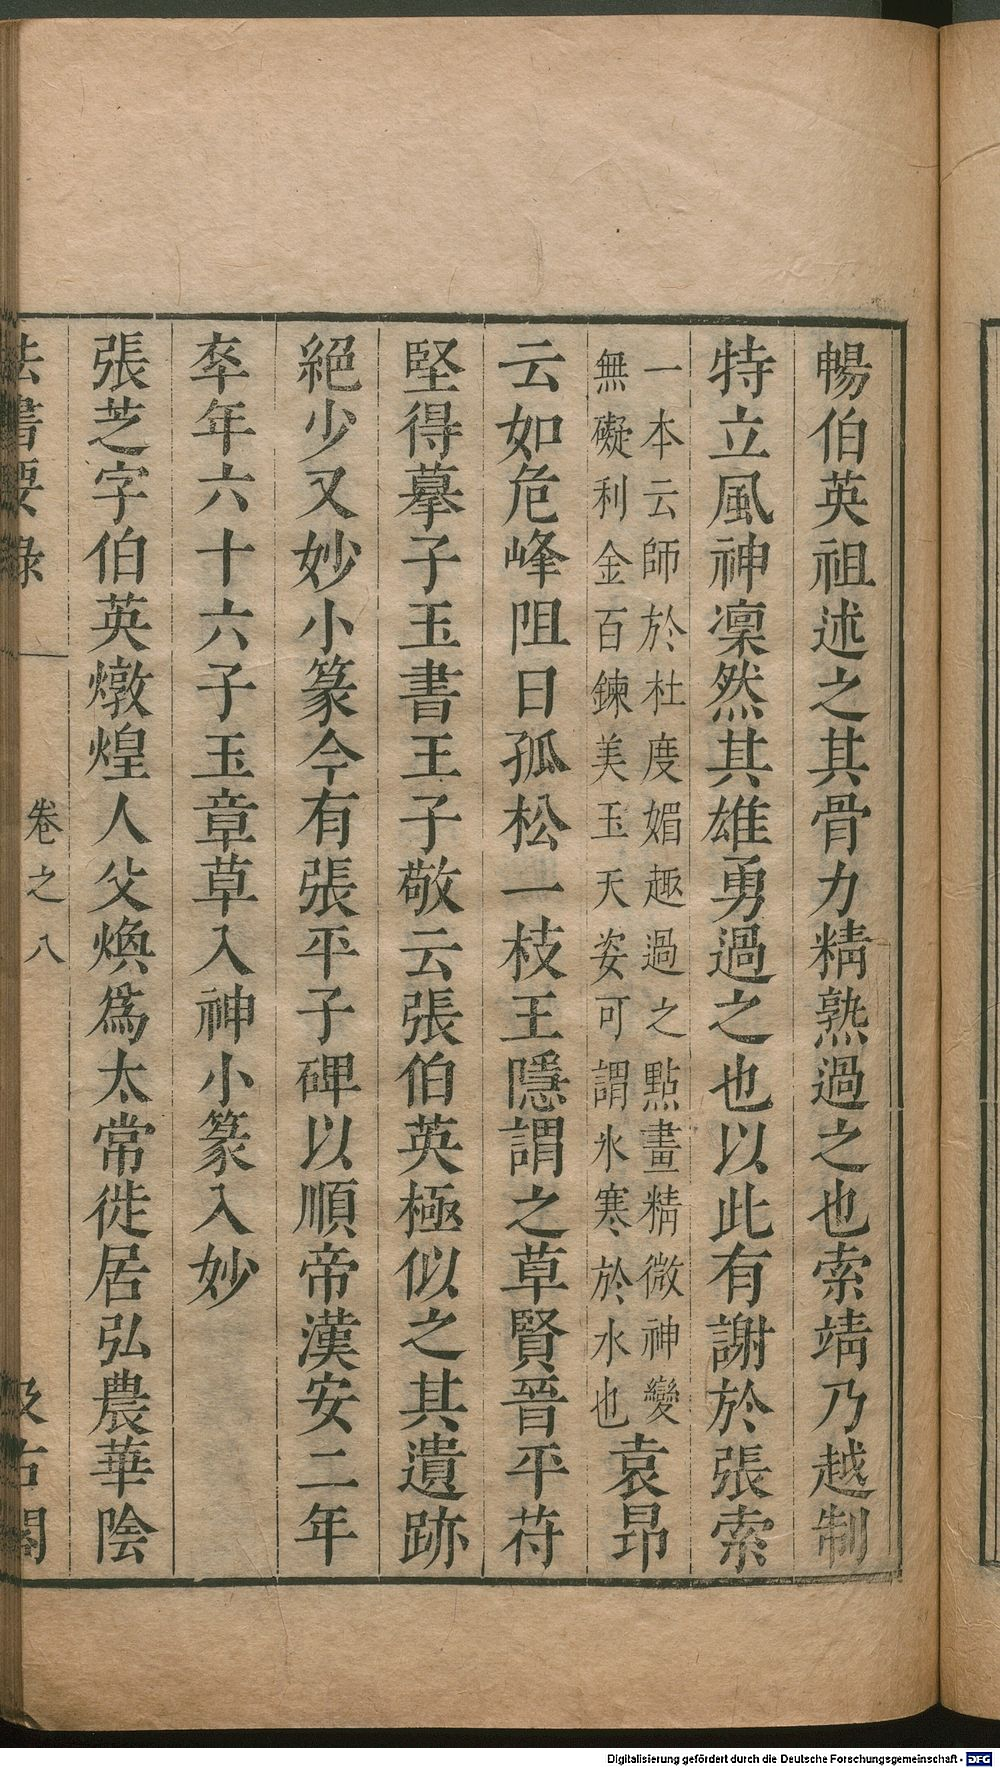 暢伯英祖述之其骨力精熟過之也索靖乃越制
特立風神凜然其雄勇過之也以此有謝於張索
一本云師於杜度媚趣過之點畫精微神變
無礙利金百鍊美玉天姿可謂氷寒於水也
袁昂
云如危峰阻日孤松一枝王隱謂之草賢晉平苻
堅得摹子玉書王子敬云張伯英極似之其遺跡
絕少又妙小篆今有張平子碑以順帝漢安二年
卒年六十六子玉章草入神小篆入妙
張芝字伯英燉煌人父煥爲太常徙居弘農華陰
法書要錄
卷之八
汲古閣
Digitalisierung gefördert durch die Deutsche Forschungsgemeinschaft - DFG